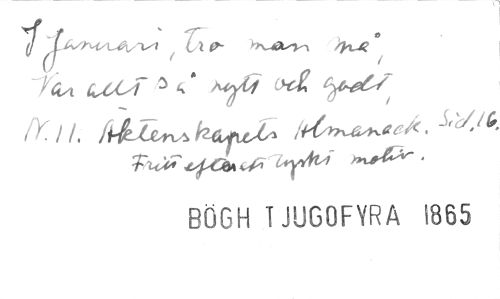 I Januari, tro man må,
Var allt så nytt och godt,
N. 11. Äktenskapets Almanack. Sid. 16.
Fritt efter ett tyskt motiv.
BÖGH TJUGOFYRA 1865